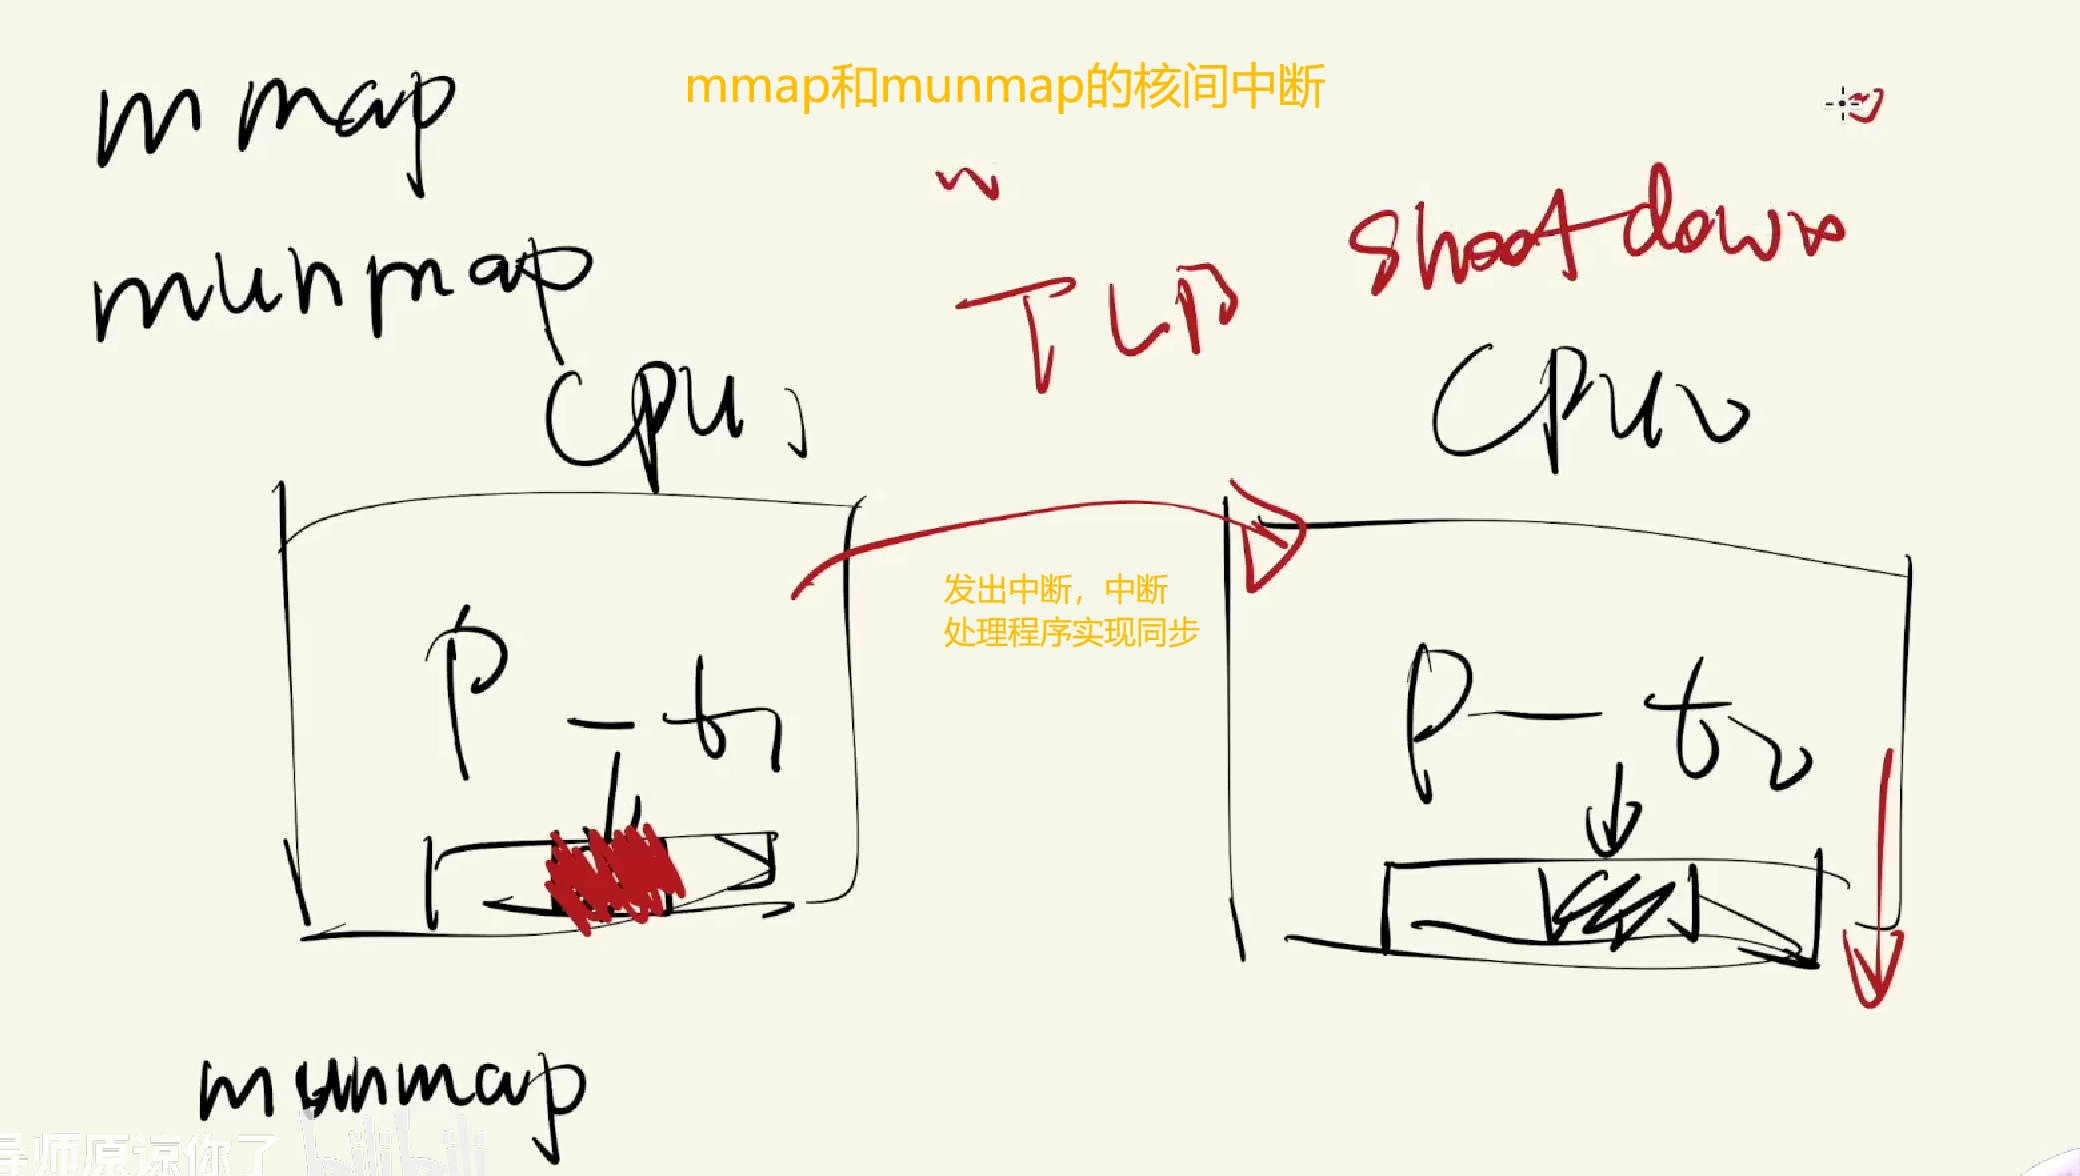 mmap
mmap和munmap的核间中断
munmap
TLB shootdown
CPU1
CPU2
发出中断，中断
处理程序实现同步
P - t1
P - t2
munmap
导师原谅你了
bilibili